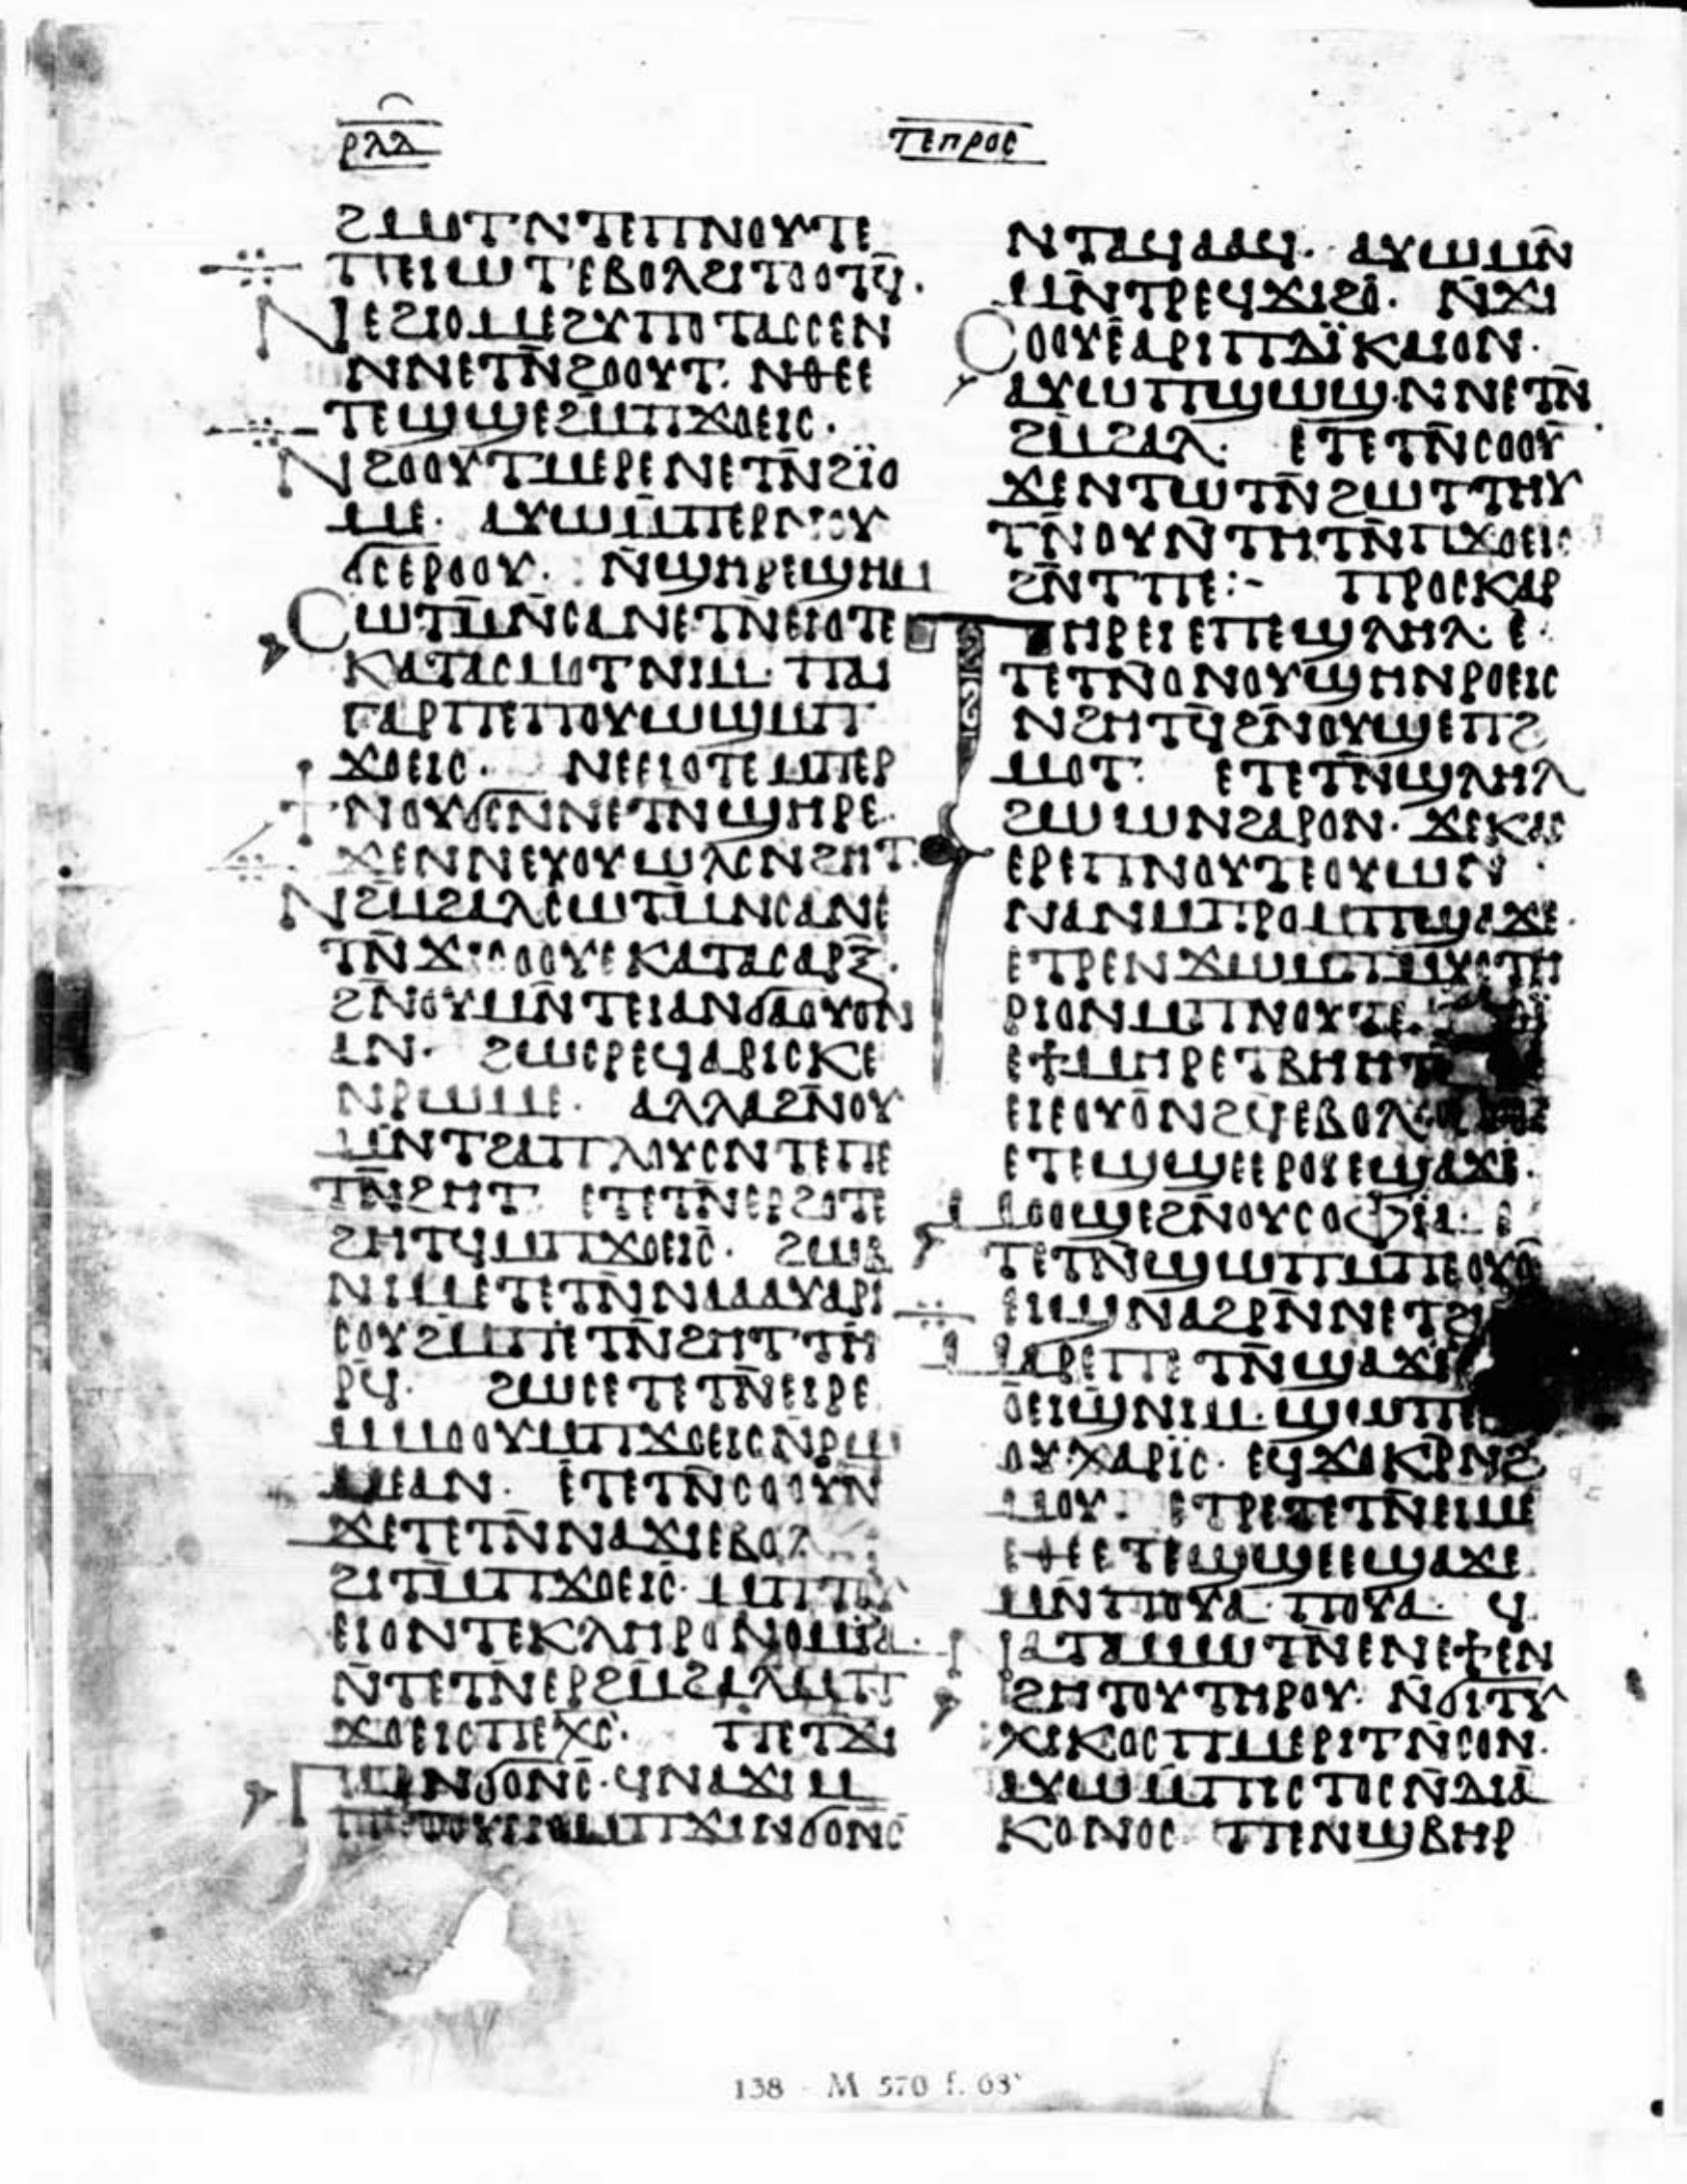 ⲣⲗⲁ
ⲧⲉⲡⲣⲟⲥ
ϩⲙⲟⲧ ⲛⲧⲉⲡⲛⲟⲩⲧⲉ
ⲡⲉⲓⲱⲧ ⲉⲃⲟⲗϩⲓⲧⲟⲟⲧϥ̄.
ⲛⲉϩⲓⲟⲙⲉϩⲩⲡⲟⲧⲁⲥⲥⲉⲛ
ⲛⲛⲉⲧⲛ̄ϩⲟⲟⲩⲧ. ⲛⲑⲉⲉ
ⲧⲉϣϣⲉϩⲙ̄ⲡϫⲟⲉⲓⲥ.
ⲛϩⲟⲟⲩⲧⲙⲉⲣⲉⲛⲉⲧⲛ̄ϩⲓ̈ⲟ
ⲙⲉ. ⲁⲩⲱⲙ̄ⲡⲉⲣⲛⲟⲩ
ϭⲥⲉⲣⲟⲟⲩ. ⲛ̄ϣⲏⲣⲉϣⲏⲙ
ⲥⲱⲧⲙ̄ⲛ̄ⲥⲁⲛⲉⲧⲛ̄ⲉⲓⲟⲧⲉ
ⲕⲁⲧⲁⲥⲙⲟⲧⲛⲓⲙ. ⲡⲁⲓ
ⲅⲁⲣⲡⲉⲧⲟⲩⲱϣϣⲙⲡ
ϫⲟⲉⲓⲥ. ⲛⲉⲉⲓⲟⲧⲉⲙⲡⲉⲣ
ϯⲛⲟⲩϭⲥⲛⲛⲉⲧⲛϣⲏⲣⲉ.
ϫⲉⲛⲛⲉⲩⲟⲩⲱⲗⲥⲛϩⲏⲧ.
ⲛϩⲙϩⲁⲗⲥⲱⲧⲙⲛⲥⲁⲛⲉ
ⲧⲛ̄ϫⲓⲥⲟⲟⲩⲉⲕⲁⲧⲁⲥⲁⲣⲝ̄.
ϩⲛ̄ⲟⲩⲙⲛ̄ⲧⲉⲓⲁⲛϭⲁⲟⲩⲟⲛ
ⲁⲛ. ϩⲱⲥⲣⲉϥⲁⲣⲓⲥⲕⲉ
ⲛⲣⲱⲙⲉ. ⲁⲗⲗⲁϩⲛ̄ⲟⲩ
ⲙⲛ̄ⲧϩⲁⲡⲗⲟⲩⲥⲛⲧⲉⲡⲉ
ⲧⲛ̄ϩⲏⲧ. ⲉⲧⲉⲧⲛ̄ⲉⲣϩⲟⲧⲉ
ϩⲏⲧϥⲙⲡϫⲟⲉⲓⲥ. ϩⲱⲃ
ⲛⲓⲙⲉⲧⲉⲧⲛ̄ⲛⲁⲁⲁⲩⲁⲣⲓ
ⲥⲟⲩϩⲙⲡⲉⲧⲛ̄ϩⲏⲧⲧⲏ
ⲣϥ. ϩⲱⲥⲉⲧⲉⲧⲛ̄ⲉⲓⲣⲉ
ⲙⲙⲟⲟⲩⲙⲡϫⲟⲉⲓⲥⲛ̄ⲣⲱ
ⲙⲉⲁⲛ. ⲉⲧⲉⲧⲛ̄ⲥⲟⲟⲩⲛ
ϫⲉⲧⲉⲧⲛ̄ⲛⲁϫⲓⲉⲃⲟⲗ
ϩⲓⲧⲙ̄ⲡϫⲟⲉⲓⲥ. ⲙⲡⲧⲟⲩ
ⲉⲓⲟⲛⲧⲉⲕⲗⲏⲣⲟⲛⲟⲙⲓⲁ.
ⲛ̄ⲧⲉⲧⲛⲉⲣϩⲙ̄ϩⲁⲗⲙⲡ
ϫⲟⲉⲓⲥⲡⲉⲭ̄ⲥ̄. ⲡⲉⲧϫⲓ
ⲛϭⲟⲛⲥ̄. ϥⲛⲁϫⲓⲙ
ⲙⲡϫⲓⲛϭⲟⲛⲥ̄
ⲛⲧⲁϥⲁⲁϥ. ⲁⲩⲱⲙⲛ̄
ⲙⲛ̄ⲧⲣⲉϥϫⲓϩⲟ̄. ⲛ̄ϫⲓ
ⲥⲟⲟⲩⲉⲁⲣⲓⲡⲇⲓ̈ⲕⲁⲓⲟⲛ.
ⲁⲩⲱⲡϣⲱϣ.ⲛⲛⲉⲧⲛ̄
ϩⲙϩⲁⲗ. ⲉⲧⲉⲧⲛ̄ⲥⲟⲟⲩ
ϫⲉⲛⲧⲱⲧⲛ̄ϩⲱⲧⲧⲏⲩ
ⲧⲛ̄ⲟⲩⲛ̄ⲧⲏⲧⲛ̄ⲡϫⲟⲉⲓⲥ
ϩⲛ̄ⲧⲡⲉ:- ⲡⲣⲟⲥⲕⲁⲣ
ⲧⲏⲣⲉⲓⲉⲡⲉϣⲗⲏⲗ. ⲉ
ⲧⲉⲧⲛ̄ⲟⲛⲟⲩϣⲏⲛⲣⲟⲉⲓⲥ
ⲛϩⲏⲧϥ̄ϩⲛ̄ⲟⲩϣⲉⲡϩ
ⲙⲟⲧ. ⲉⲧⲉⲧⲛ̄ϣⲗⲏⲗ
ϩⲱⲱⲛϩⲁⲣⲟⲛ. ϫⲉⲕⲁⲥ
ⲉⲣⲉⲡⲛⲟⲩⲧⲉⲟⲩⲱⲛ
ⲛⲁⲛⲙⲡⲣⲟⲙⲡϣⲁϫⲉ.
ⲉⲧⲣⲉⲛϫⲱⲙⲡⲙⲩⲥⲧⲏ
ⲣⲓⲟⲛⲙⲡⲛⲟⲩⲧⲉ.
ⲉϯⲙⲏⲣⲉⲧⲃⲏⲏⲧ
ⲉⲓⲉⲟⲩⲟ̄ⲛϩϥⲉⲃⲟⲗ
ⲉⲧⲉϣϣⲉⲉⲣⲟⲓⲉϣⲁϫⲉ.
ⲙⲟⲟϣⲉϩⲛ̄ⲟⲩⲥⲟⲫⲓⲁ. ⲉ
ⲧⲉⲧⲛ̄ϣⲱⲡⲙⲡⲉⲟⲩⲟ̄
ⲉⲓϣⲛⲁϩⲣⲛ̄ⲛⲉⲧϩⲓ
ⲙⲁⲣⲉⲡⲉⲧⲛ̄ϣⲁϫⲉ
ⲟⲉⲓϣⲛⲓⲙ. ϣⲱⲡⲉ
ⲟⲩⲭⲁⲣⲓ̈ⲥ. ⲉϥϫⲟⲕⲣ̄ⲛϩ
ⲙⲟⲩ. ⲉⲧⲣⲉⲧⲉⲧⲛ̄ⲉⲓⲙⲉ
ⲉⲑⲉⲉⲧⲉϣϣⲉⲉϣⲁϫⲉ
ⲙⲛ̄ⲡⲟⲩⲁ. ⲡⲟⲩⲁ. ϥ
ⲛⲁⲧⲁⲙⲱⲧⲛ̄ⲉⲛⲉϯⲉⲛ
ϩⲏⲧⲟⲩⲧⲏⲣⲟⲩ. ⲛ̄ϭⲓⲧⲩ
ⲭⲓⲕⲟⲥⲡⲙⲉⲣⲓⲧⲛ̄ⲥⲟⲛ.
ⲁⲩⲱⲙ̄ⲡⲓⲥⲧⲟⲥⲛ̄ⲇⲓⲁ
ⲕⲟⲛⲟⲥ. ⲡⲉⲛϣⲃⲏⲣ
138 - M 570 f. 68ᵛ